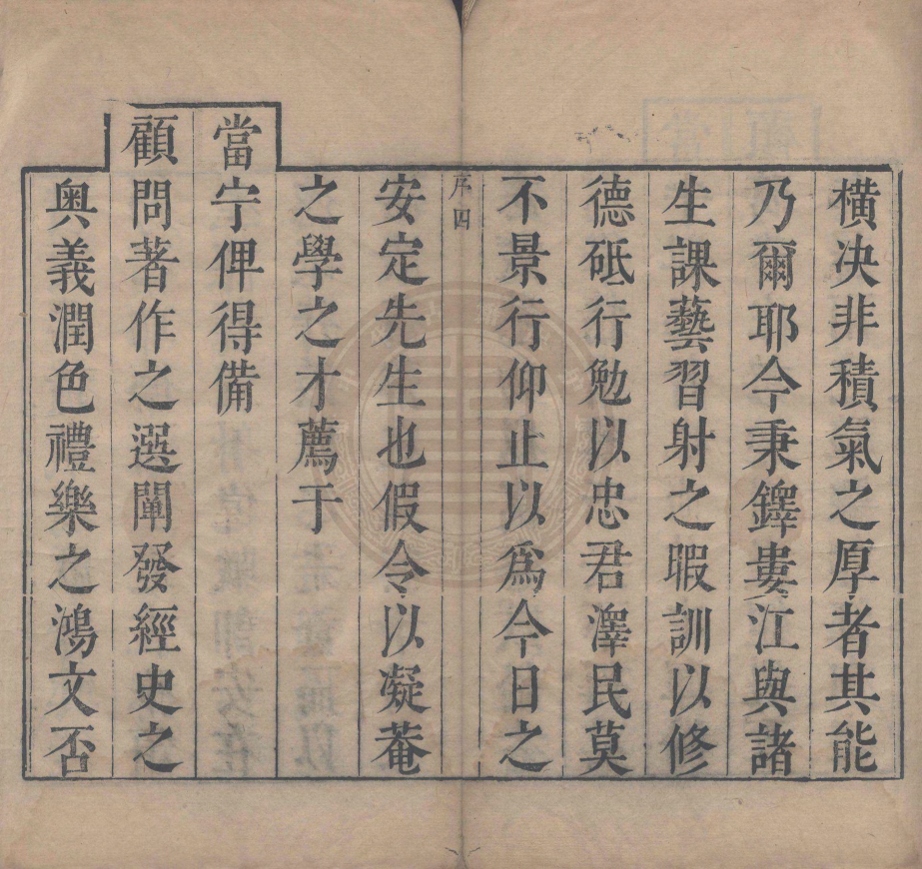 橫决非積氣之厚者其能
乃爾耶今秉鐸婁江與諸
生課藝習射之暇訓以修
德砥行勉以忠君澤民莫
不景行仰止以爲今日之
序四
安定先生也假令以凝菴
之學之才薦于
當宁俾得備
顧問著作之選闡發經史之
奥義潤色禮樂之鴻文否